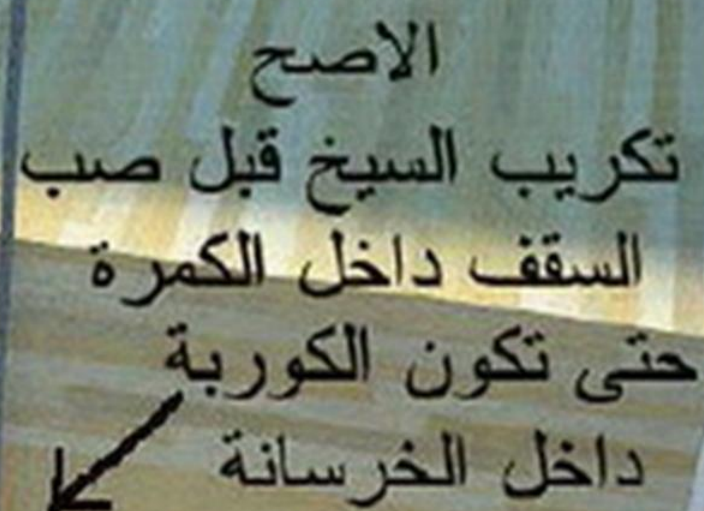 الاصح
تكريب السيخ قبل صب
السقف داخل الكمرة
حتى تكون الكوربة
داخل الخرسانة